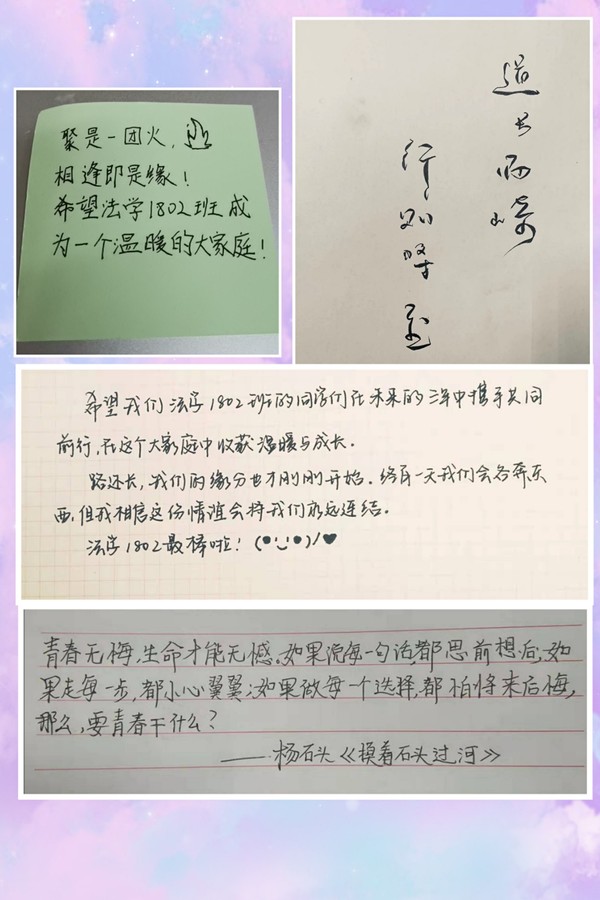 聚是一团火,
相逢即是缘!
希望法学1802班成
为一个温暖的大家庭!
道长而崎
行则将至
希望我们法学1802班的同学们在未来的三年中携手共同
前行,在这个大家庭中收获温暖与成长。
路还长,我们的缘分也才刚刚开始。终有一天我们会各奔东
西,但我相信这份情谊会将我们永远连结。
法学1802最棒啦!
青春无悔,生命才能无憾。如果说每一句话,都思前想后;如
果走每一步,都小心翼翼;如果做每一个选择,都怕将来后悔,
那么,要青春干什么?
——杨石头《摸着石头过河》